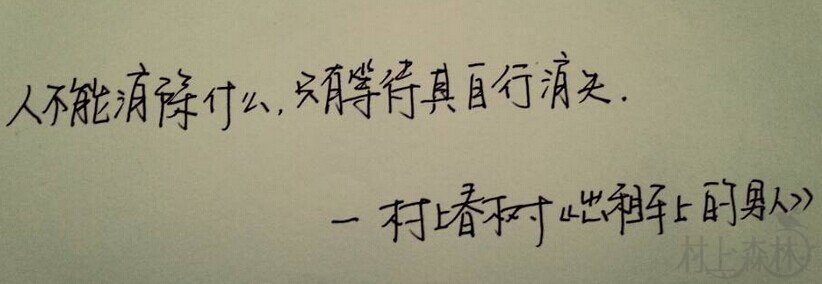 人不能消除什么，只有等待其自行消失.
— 村上春树《出租车上的男人》
村上森林